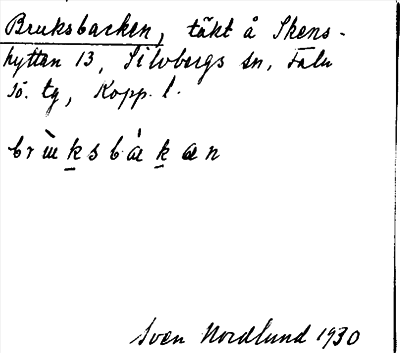 Bruksbacken, täkt å Skens-
hyttan 13, Silvbergs sn, Falu
sö. tg, Kopp. l.
brɯ̀ksbákan
Sven Nordlund 1930